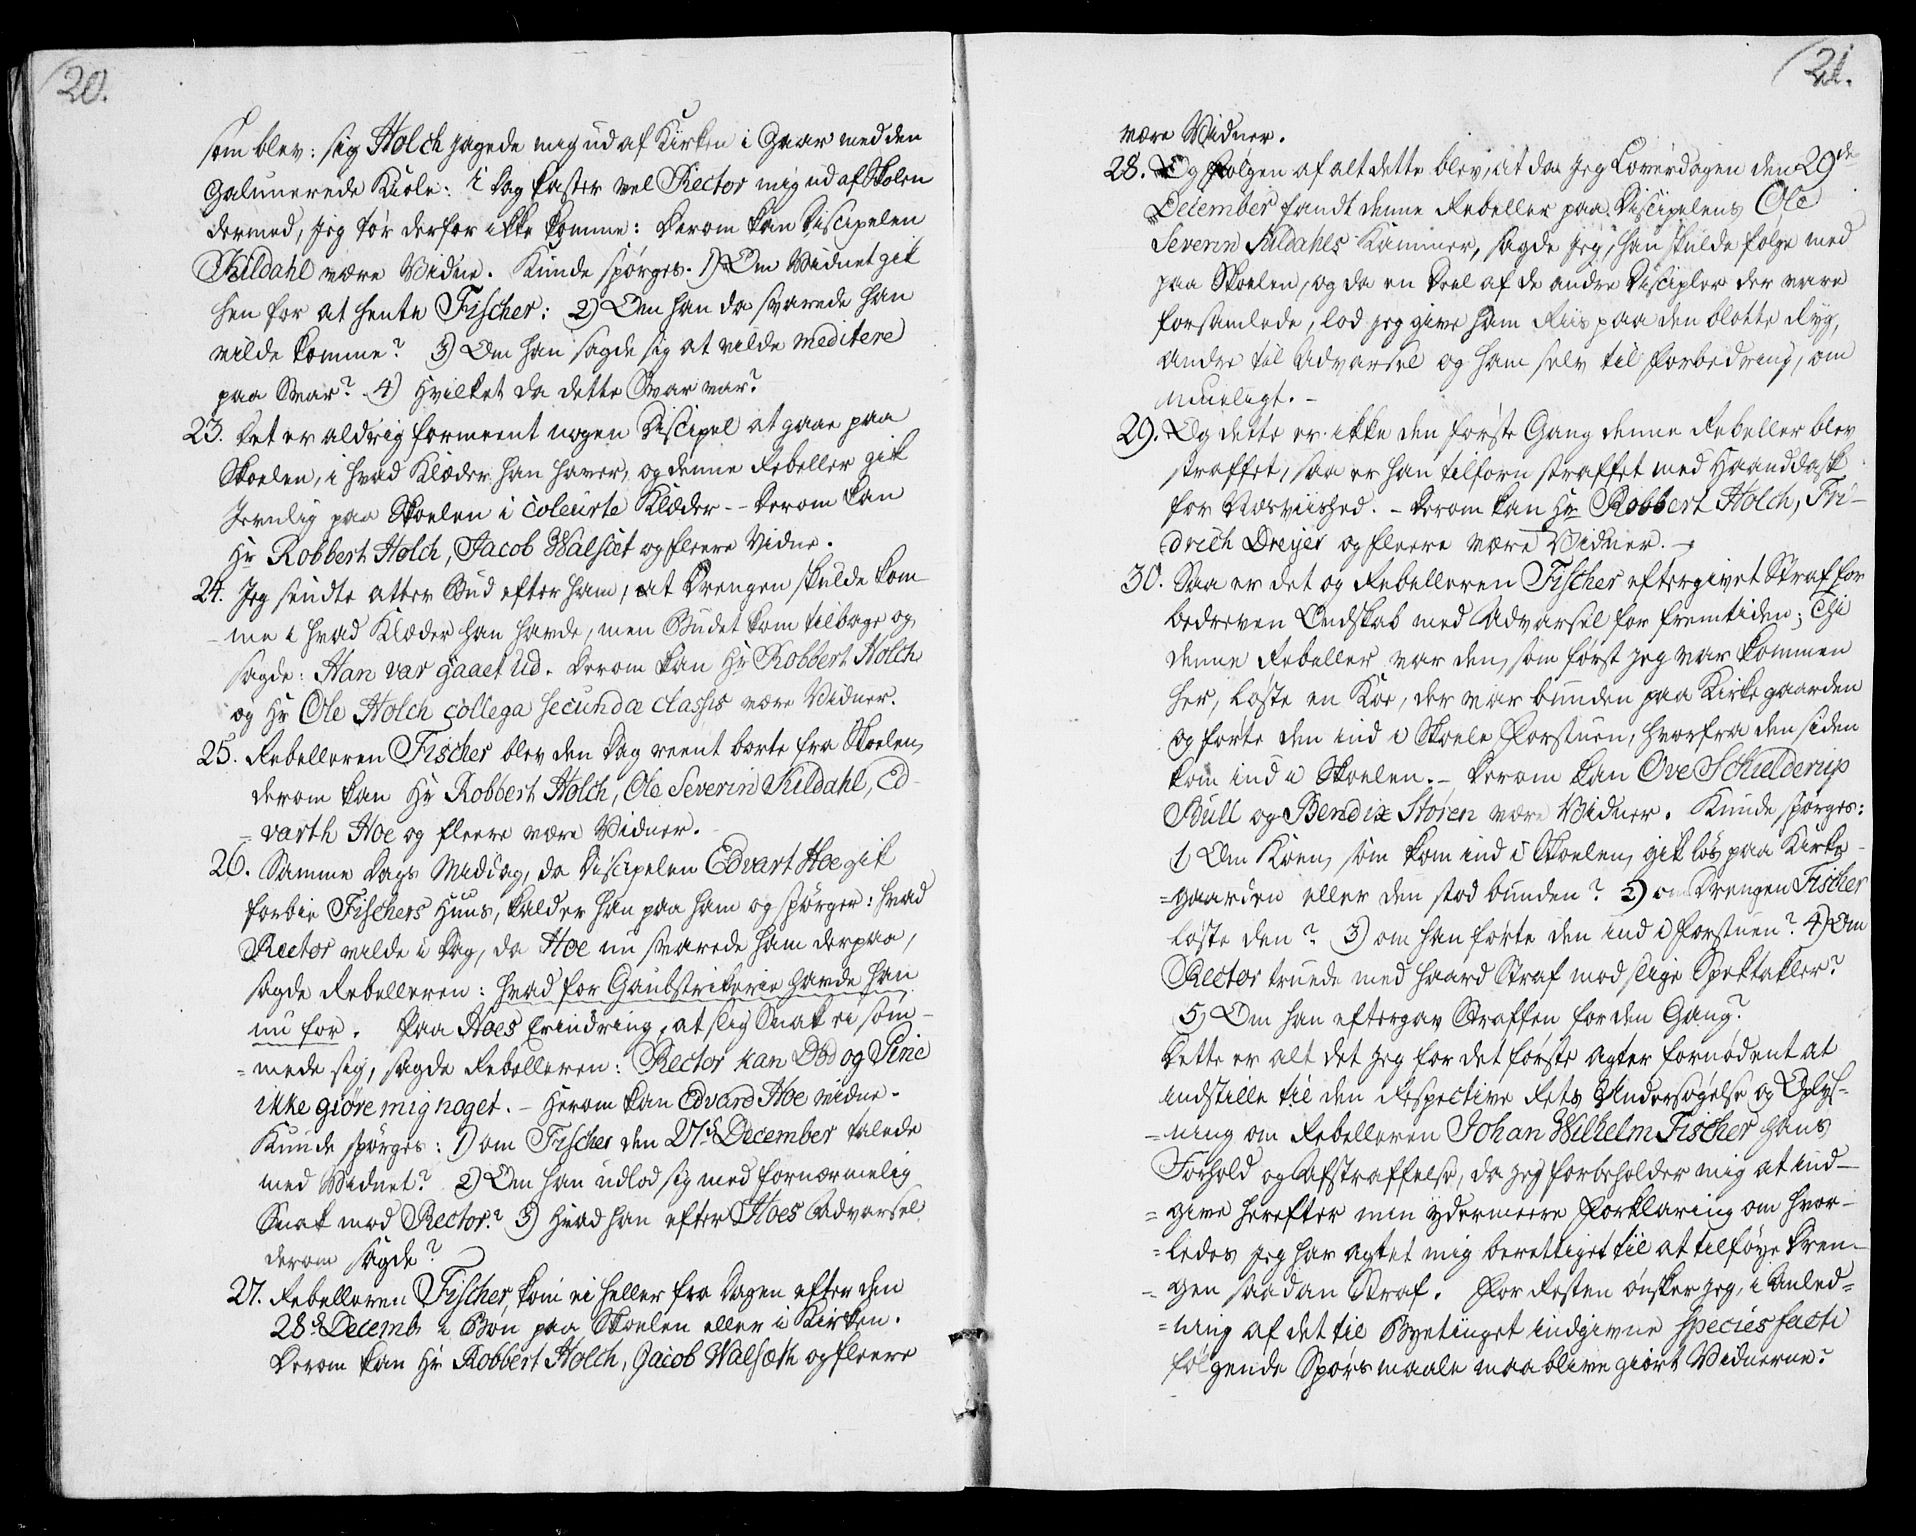 20.
som blev: sig Holch jagede mig ud af Kirken i Gaar med den
Galunerede Kiole: i Dag kaster vel Rector mig ud af Skolen
dermed, jeg tør derfor ikke komme: Derom kan Discipelen
Kildahl være Vidne. Kunde spørges. 1) Om Vidnet gik
hen for at hente Fischer: 2) Om han da svarede han
vilde komme? 3) Om han sagde sig at vilde meditere
paa Svar? 4) Hvilket da dette Svar var?
23. Det er aldrig formeent nogen Discipel at gaae paa
Skoelen, i hvad Klæder han haver, og denne Rebeller gik
Jevnlig paa Skoelen i coleurte Klæder - - Derom kan
Hr Robbert Holch, Jacob Walsæt og fleere Vidne.
24. Jeg sendte atter Bud efter ham, at Drengen skulde kom-
me i hvad Klæder han havde, men Budet kom tilbage og
sagde: Han var gaaet ud. Derom kan Hr Robbert Holch
og Hr Ole Holch collega secundæ classis være Vidner.
25. Rebelleren Fischer blev den Dag reent borte fra Skoelen,
derom kan Hr Robbert Holch, Ole Severin Kildahl, Ed-
=varth Hoe og fleere være Vidner.
26. Samme Dags Middag, da Discipelen Edvart Hoe gik
forbie Fischers Huus, kalder han paa ham og spørger: hvad
Rector vilde i Dag, da Hoe nu svarede ham derpaa,
sagde Rebelleren: hvad for Gaudstrikerie havde han
nu for. Paa Hoes Erindring, at slig Snak ei søm-
=mede sig, sagde Rebelleren: Rector kan Død og Pine
ikke giøre mig noget. - Herom kan Edvard Hoe vidne.
Kunde spørges: 1) om Fischer den 27d December talede
med Vidnet? 2) Om han udlod sig med fornærmelig
Snak mod Rector? 3) Hvad han efter Hoes Advarsel
derom sagde?
27. Rebelleren Fischer, kom ei heller fra Dagen efter den
28d Decemb i Bøn paa Skoelen eller i Kirken.
Derom kan Hr Robbert Holch, Jacob Walsæth og fleere
21.
være Vidner.
28. Og Følgen af alt dette blev, at da jeg Løverdagen den 29de
December fandt denne Rebeller paa Discipelens Ole
Severin Kildahls Kammer, sagde jeg, han skulde følge med
paa Skoelen, og da en Deel af de andre Discipler der vare
forsamlede, lod jeg give ham Riis paa den blotte Ryg,
andre til Advarsel og ham selv til forbedring, om
mueligt. -
29. Og dette er ikke den første Gang denne Rebeller blev
straffet, saa er han tilforn straffet med Haanddask
for Næsviished. - Derom kan Hr Robbert Holch, Fri-
drich Dreyer og fleere være Vidner. -
30. Saa er det og Rebelleren Fischer eftergivet Straf for
bedreven Ondskab med Advarsel for fremtiden; Thi
denne Rebeller var den, som først jeg var kommen
her, løste en Koe, der var bunden paa Kirkegaarden
og førte den ind i Skoele Forstuen, hvorfra den siden
kom ind i Skoelen. - Derom kan Ove Schielderup
Bull og Bendix Støren være Vidner. Kunde spørges:
1) Om Koen, som kom ind i Skoelen, gik løs paa Kirke-
=gaarden eller den stod bunden? 2) om Drengen Fischer
løste den? 3) om han førte den ind i Forstuen? 4) Om
Rector truede med haard Straf mod slige Spektakler?
5) Om han eftergav Straffen for den Gang?
Dette er alt det jeg for det første agter fornødent at
indstille til den Respective Rets Undersøgelse og Oplys-
=ning om Rebelleren Johan Wilhelm Fischer hans
Forhold og Afstraffelse, da jeg forbeholder mig at ind-
=give herefter min ydermeere Forklaring om hvor-
=ledes jeg har agtet mig berettiget til at tilføye Dren-
=gen saadan Straf. For Resten ønsker jeg, i Anled-
=ning af det til Byetinget indgivne species facti
følgende Spørsmaale maa blive giort Vidnerne: